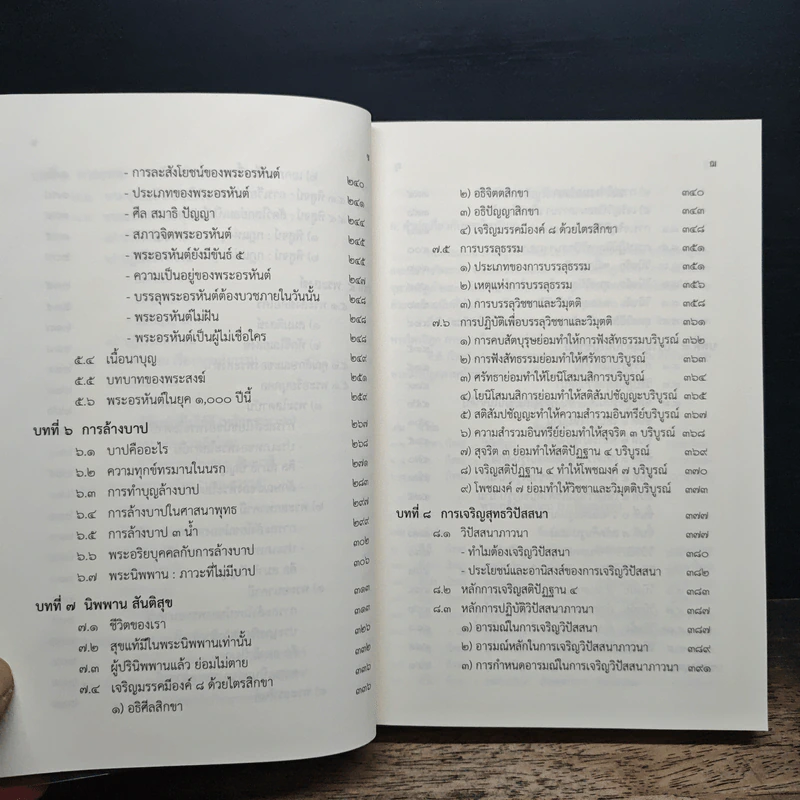 - การละสังโยชน์ของพระอรหันต์ ๒๔๐
- ประเภทของพระอรหันต์ ๒๔๑
- ศีล สมาธิ ปัญญา ๒๔๔
- สภาวจิตพระอรหันต์ ๒๔๕
- พระอรหันต์ยังมีขันธ์ ๕ ๒๔๕
- ความเป็นอยู่ของพระอรหันต์ ๒๔๗
- บรรลุพระอรหันต์ต้องบวชภายในวันนั้น ๒๔๘
- พระอรหันต์ไม่ฝัน ๒๔๘
- พระอรหันต์เป็นผู้ไม่เชื่อใคร ๒๔๘
๕.๔ เนื้อนาบุญ ๒๔๙
๕.๕ บทบาทของพระสงฆ์ ๒๕๑
๕.๖ พระอรหันต์ในยุค ๑,๐๐๐ ปีนี้ ๒๕๙
บทที่ ๖ การล้างบาป ๒๖๗
๖.๑ บาปคืออะไร ๒๖๘
๖.๒ ความทุกข์ทรมานในนรก ๒๗๑
๖.๓ การทำบุญล้างบาป ๒๘๓
๖.๔ การล้างบาปในศาสนาพุทธ ๒๙๗
๖.๕ การล้างบาป ๓ น้ำ ๒๙๙
๖.๖ พระอริยบุคคลกับการล้างบาป ๓๐๒
๖.๗ พระนิพพาน : ภาวะที่ไม่มีบาป ๓๐๖
บทที่ ๗ นิพพาน สันติสุข ๓๑๓
๗.๑ ชีวิตของเรา ๓๑๓
๗.๒ สุขแท้มีในพระนิพพานเท่านั้น ๓๒๖
๗.๓ ผู้ปรินิพพานแล้ว ย่อมไม่ตาย ๓๓๒
๗.๔ เจริญมรรคมีองค์ ๘ ด้วยไตรสิกขา ๓๓๖
๑) อธิศีลสิกขา ๓๓๖
ฌ
๒) อธิจิตตสิกขา ๓๔๐
๓) อธิปัญญาสิกขา ๓๔๓
๔) เจริญมรรคมีองค์ ๘ ด้วยไตรสิกขา ๓๔๘
๗.๕ การบรรลุธรรม ๓๕๑
๑) ประเภทของการบรรลุธรรม ๓๕๑
๒) เหตุแห่งการบรรลุธรรม ๓๕๖
๓) การบรรลุวิชชาและวิมุตติ ๓๕๘
๗.๖ การปฏิบัติเพื่อบรรลุวิชชาและวิมุตติ ๓๖๑
๑) การคบสัตบุรุษย่อมทำให้การฟังสัทธรรมบริบูรณ์ ๓๖๒
๒) การฟังสัทธรรมย่อมทำให้ศรัทธาบริบูรณ์ ๓๖๓
๓) ศรัทธาย่อมทำให้โยนิโสมนสิการบริบูรณ์ ๓๖๔
๔) โยนิโสมนสิการย่อมทำให้สติสัมปชัญญะบริบูรณ์ ๓๖๕
๕) สติสัมปชัญญะทำให้ความสำรวมอินทรีย์บริบูรณ์ ๓๖๗
๖) ความสำรวมอินทรีย์ย่อมทำให้สุจริต ๓ บริบูรณ์ ๓๖๘
๗) สุจริต ๓ ย่อมทำให้สติปัฏฐาน ๔ บริบูรณ์ ๓๖๙
๘) เจริญสติปัฏฐาน ๔ ทำให้โพชฌงค์ ๗ บริบูรณ์ ๓๗๐
๙) โพชฌงค์ ๗ ย่อมทำให้วิชชาและวิมุตติบริบูรณ์ ๓๗๓
บทที่ ๘ การเจริญสุทธวิปัสสนา ๓๗๗
๘.๑ วิปัสสนาภาวนา ๓๗๗
- ทำไมต้องเจริญวิปัสสนา ๓๘๐
- ประโยชน์และอานิสงส์ของการเจริญวิปัสสนา ๓๘๒
๘.๒ หลักการเจริญสติปัฏฐาน ๔ ๓๘๓
๘.๓ หลักการปฏิบัติวิปัสสนาภาวนา ๓๘๗
๑) อารมณ์ในการเจริญวิปัสสนา ๓๘๗
๒) อารมณ์หลักในการเจริญวิปัสสนาภาวนา ๓๘๙
๓) การกำหนดอารมณ์ในการเจริญวิปัสสนาภาวนา ๓๙๑